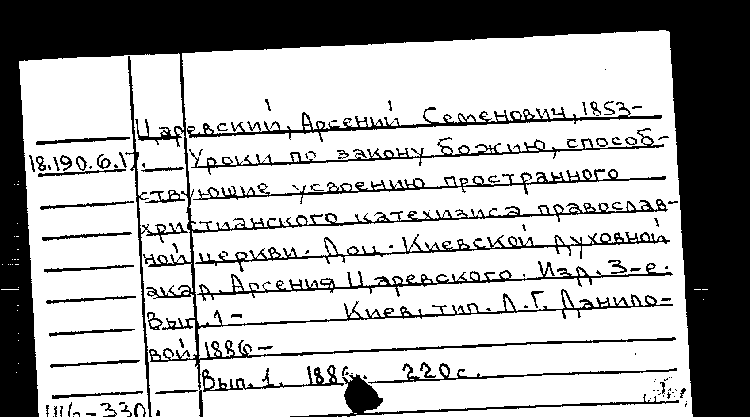 Царевский, Арсений Семенович, 1853-
18.190.6.17. Уроки по закону божию, способ-
ствующие усвоению пространного
христианского катехизиса православ-
ной церкви. Доц. Киевской духовной
акад. Арсения Царевского. Изд. 3-е.
Вып. 1- Киев, тип. Л.Г. Данило-
вой, 1886-
Вып. 1. 1886. 220 с.